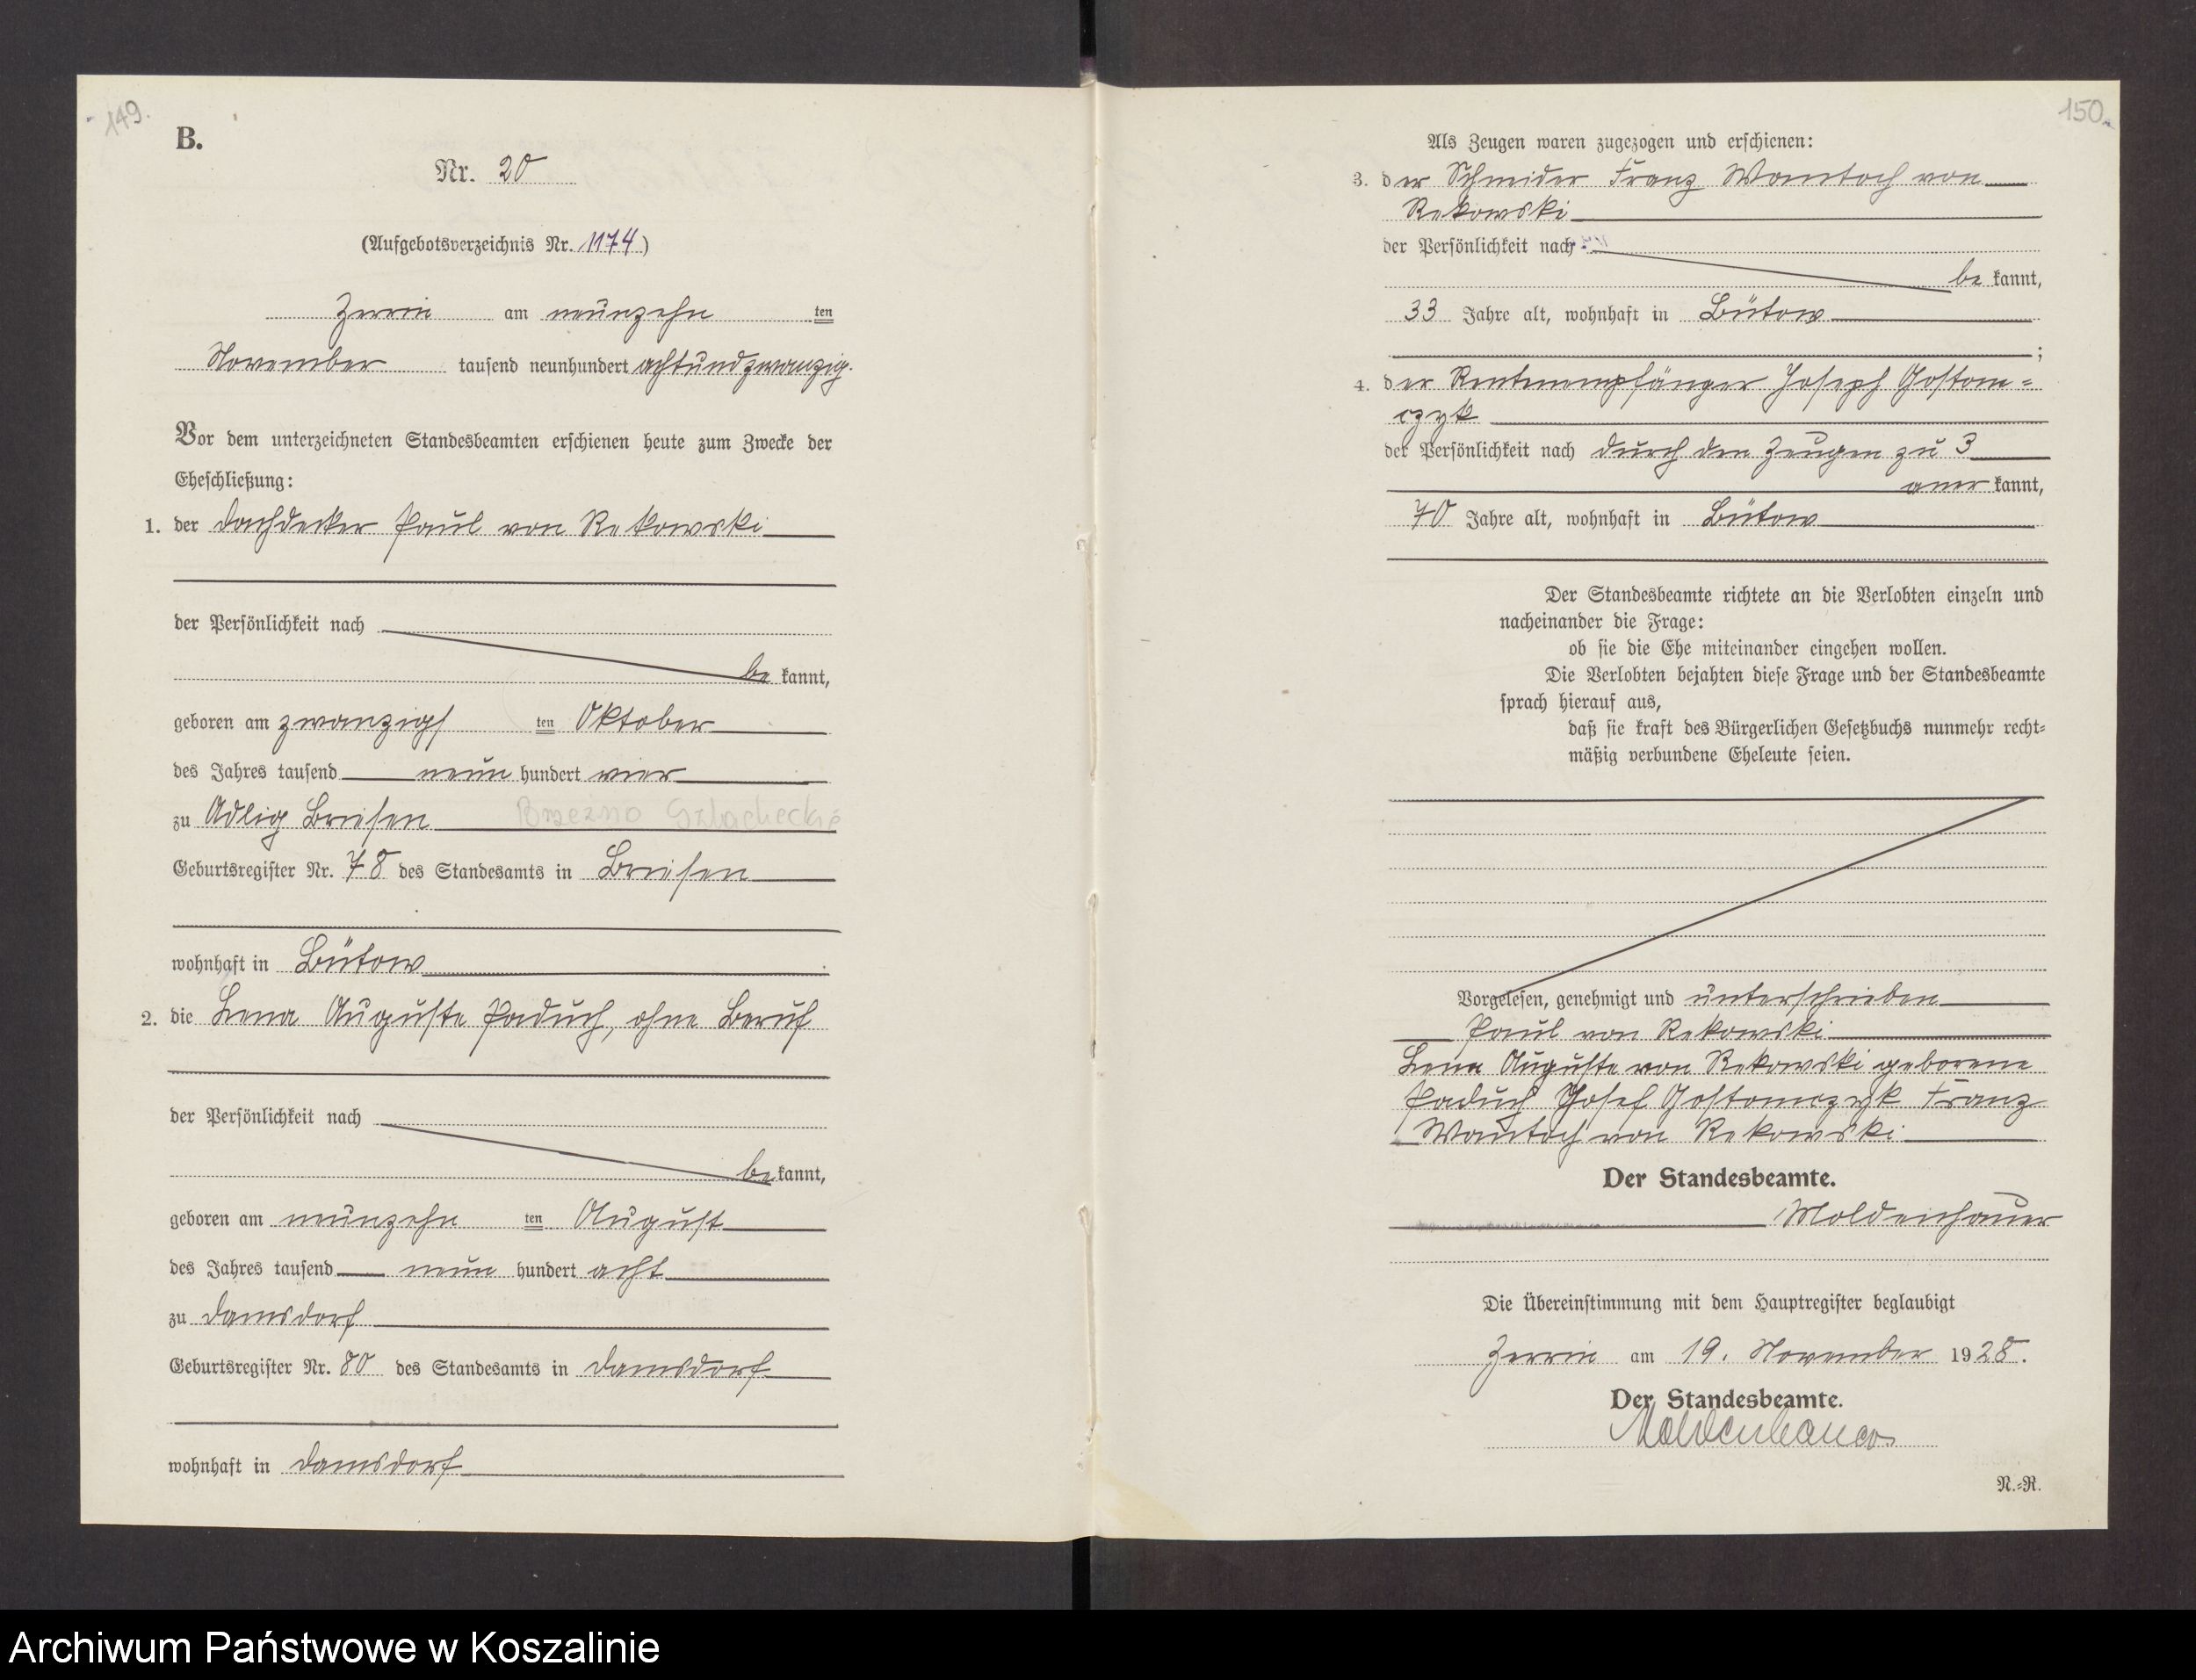 149.
B.
Nr. 20
(Aufgebotsverzeichnis Nr. 1174)
Zerrin am neunzehn ten
November tausend neunhundert achtundzwanzig.
Vor dem unterzeichneten Standesbeamten erschienen heute zum Zwecke der
Eheschließung:
1. der Dachdecker Paul von Rekowski
der Persönlichkeit nach
be kannt,
geboren am zwanzigs ten Oktober
des Jahres tausend neun hundert vier
zu Adlig Briesen Brzeźno Szlacheckie
Geburtsregister Nr. 78 des Standesamts in Briesen
wohnhaft in Bütow
2. die Lena Auguste Paduch, ohne Beruf
der Persönlichkeit nach
be kannt,
geboren am neunzehn ten August
des Jahres tausend neun hundert acht
zu Damsdorf
Geburtsregister Nr. 80 des Standesamts in Damsdorf
wohnhaft in Damsdorf
150.
Als Zeugen waren zugezogen und erschienen:
3. der Schneider Franz Wantoch von
Rekowski
der Persönlichkeit nach
be kannt,
33 Jahre alt, wohnhaft in Bütow
;
4. der Rentenempfänger Joseph Gostom=
czyk
der Persönlichkeit nach durch den Zeugen zu 3
aner kannt,
70 Jahre alt, wohnhaft in Bütow
Der Standesbeamte richtete an die Verlobten einzeln und
nacheinander die Frage:
ob sie die Ehe miteinander eingehen wollen.
Die Verlobten bejahten diese Frage und der Standesbeamte
sprach hierauf aus,
daß sie kraft des Bürgerlichen Gesetzbuchs nunmehr recht-
mäßig verbundene Eheleute seien.
Vorgelesen, genehmigt und unterschrieben
Paul von Rekowski
Lena Auguste von Rekowski geborene
Paduch Josef Gostomczyk Franz
Wantoch von Rekowski
Der Standesbeamte.
Moldenhauer
Die Übereinstimmung mit dem Hauptregister beglaubigt
Zerrin am 19. November 1928.
Der Standesbeamte.
Moldenhauer
N.-R.
Archiwum Państwowe w Koszalinie